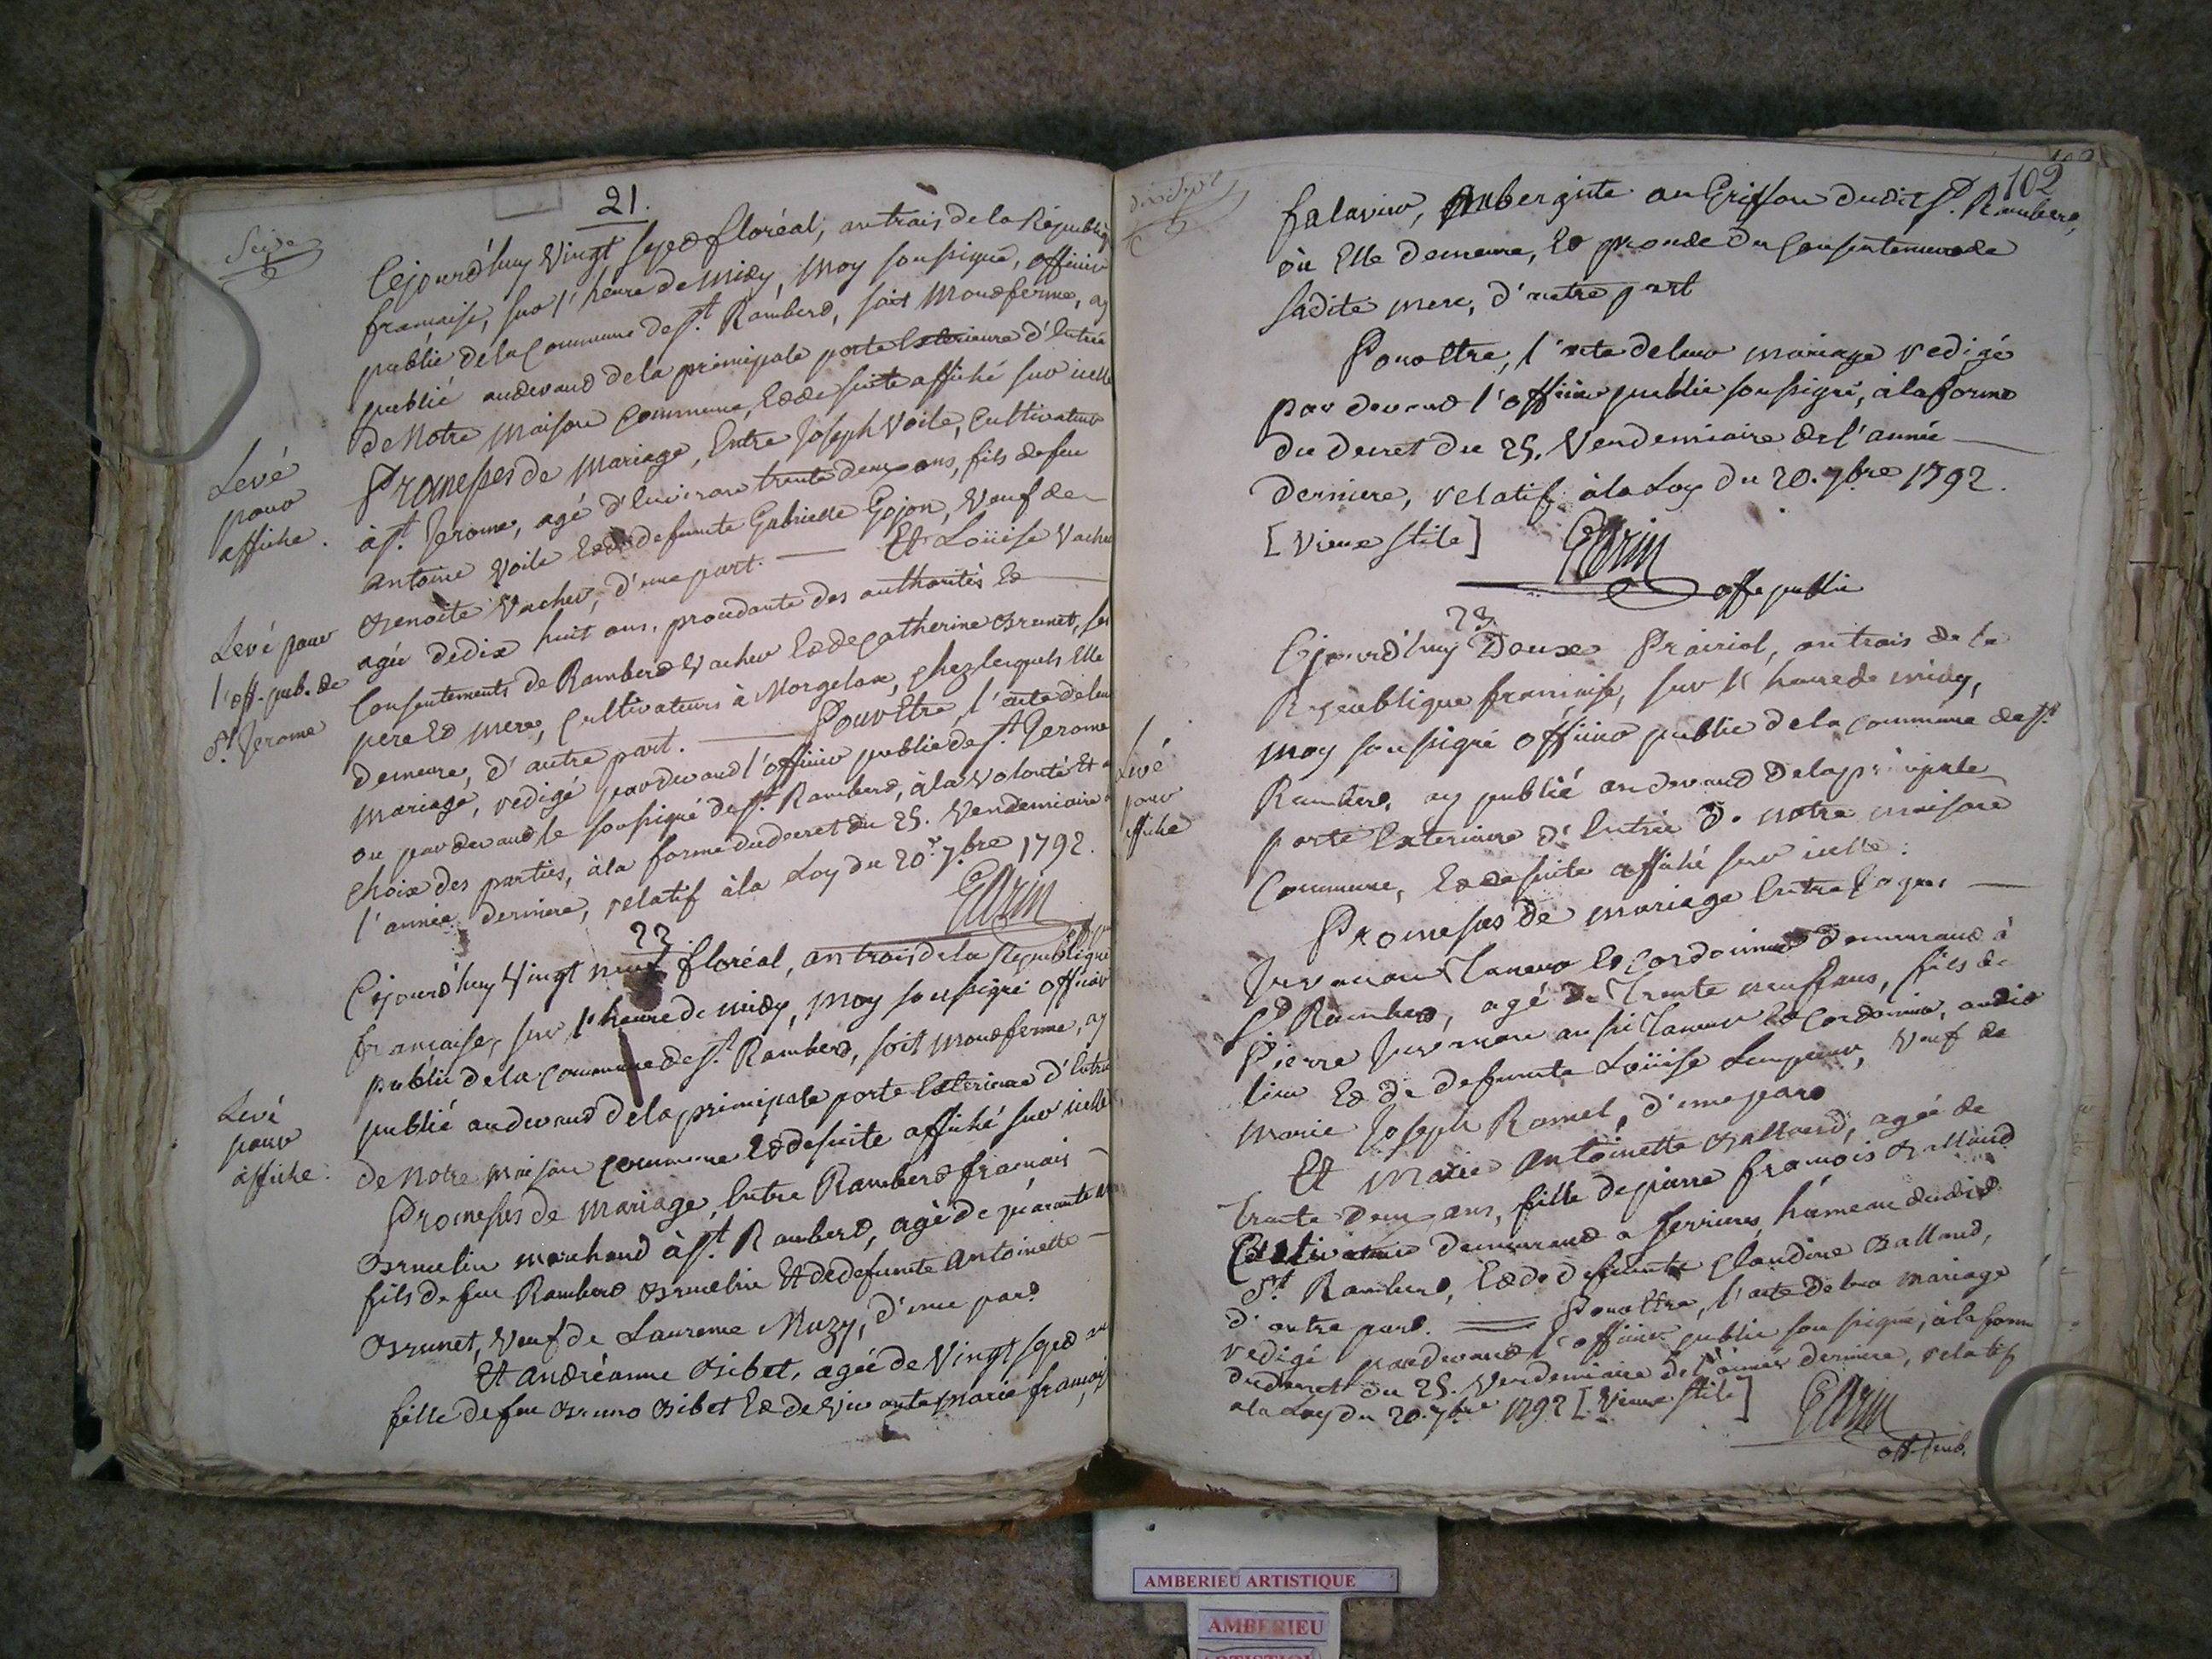 Seize
21.
Cejourd'huy Vingt sept floréal, an trois de la Républiq
française, sur l'heure de midy, moy soussigné, officier
public de la Commune de St. Rambert, soit Montferme, ay
publié audevant de la principale porte Exterieure d'Entrée
de Notre maison Commune, Et de suite affiché sur icelle
Promesses de mariage, Entre Joseph Voile, Cultivateur
à St. Jerome, agé d'Environ trente deux ans, fils de feu
antoine Voile Et de defunte Gabrielle Gojon, Veuf de
Benoite Vacher, d'une part. — Et Loüise Vacher
agée de dix huit ans, procedante des authorités Et
Consentements de Rambert Vacher Et de Catherine Brunet, ses
pere Et mere, Cultivateurs à Morgelas, chez lesquels Elle
demeure, d'autre part. — Pour Etre, l'acte de leur
mariage, redigé pardevant l'officier public de St. Jerome
ou pardevant le soussigné de St. Rambert, à la volonté Et au
choix des parties, à la forme du decret du 25. Vendemiaire
l'année derniere, relatif à la Loy du 20. 7.bre 1792.
Levé
pour
affiche.
Levé pour
l'off. pub. de
St. Jerome
22
Cejourd'huy Vingt neuf floréal, an trois de la République
française, sur l'heure de midy, moy soussigné officier
public de la commune de St. Rambert, soit montferme, ay
publié audevant de la principale porte Exterieure d'Entrée
de Notre maison commune Et de suite affiché sur icelle
Promesses de mariage, Entre Rambert françois
Brucelin marchand à St. Rambert, agé de quarante
fils de feu Rambert Brucelin Et de defunte Antoinette
Brunet, Veuf de Laurence Muzy, d'une part
Et Andréanne Bibet, agée de Vingt sept
fille de feu Bruno Bibet Et de Vivante Marie françoise
Levé
pour
affiche.
dix sept
102
falavier, aubergiste au Griffon dudit St. Rambert,
où Elle demeure, Et procede du Consentement de
sadite mere, d'autre part
Pour Etre, l'acte de leur mariage redigé
par devant l'officier public soussigné, à la forme
du decret du 25. Vendemiaire de l'année
derniere, relatif à la Loy du 20. 7bre 1792.
[Vieux stile]
offe public
23
Cejourd'huy Deux Prairial, an trois de la
Republique française, sur l'heure de midy,
moy soussigné officier public de la commune de St.
Rambert, ay publié audevant de la principale
porte Exterieure d'Entrée de notre maison
Commune, Et de suite affiché sur icelle.
Promesses de mariage Entre Jaques
Juvanon Taneur Et Cordonnier demeurant à
St. Rambert, agé de Trente neuf ans, fils de
Pierre Juvanon aussi Taneur Et Cordonnier, audit
lieu Et de defunte Loüise, Veuf de
Marie Joseph Ramel, d'une part
Et Marie Antoinette Balland, agée de
Trente deux ans, fille de pierre françois Balland
Cultivateur demeurant a Serrieres, hameau dudit
St. Rambert, Et de defunte Claudine Balland,
d'autre part. — Pour Etre, l'acte de leur mariage
redigé pardevant l'officier public soussigné, à la forme
du decret du 25. Vendemiaire de l'année derniere, relatif
a la Loy du 20. 7bre 1792 [Vieux stile]
off. pub.
Levé
pour
affiche
AMBERIEU ARTISTIQUE
AMBERIEU
ARTISTIQUE